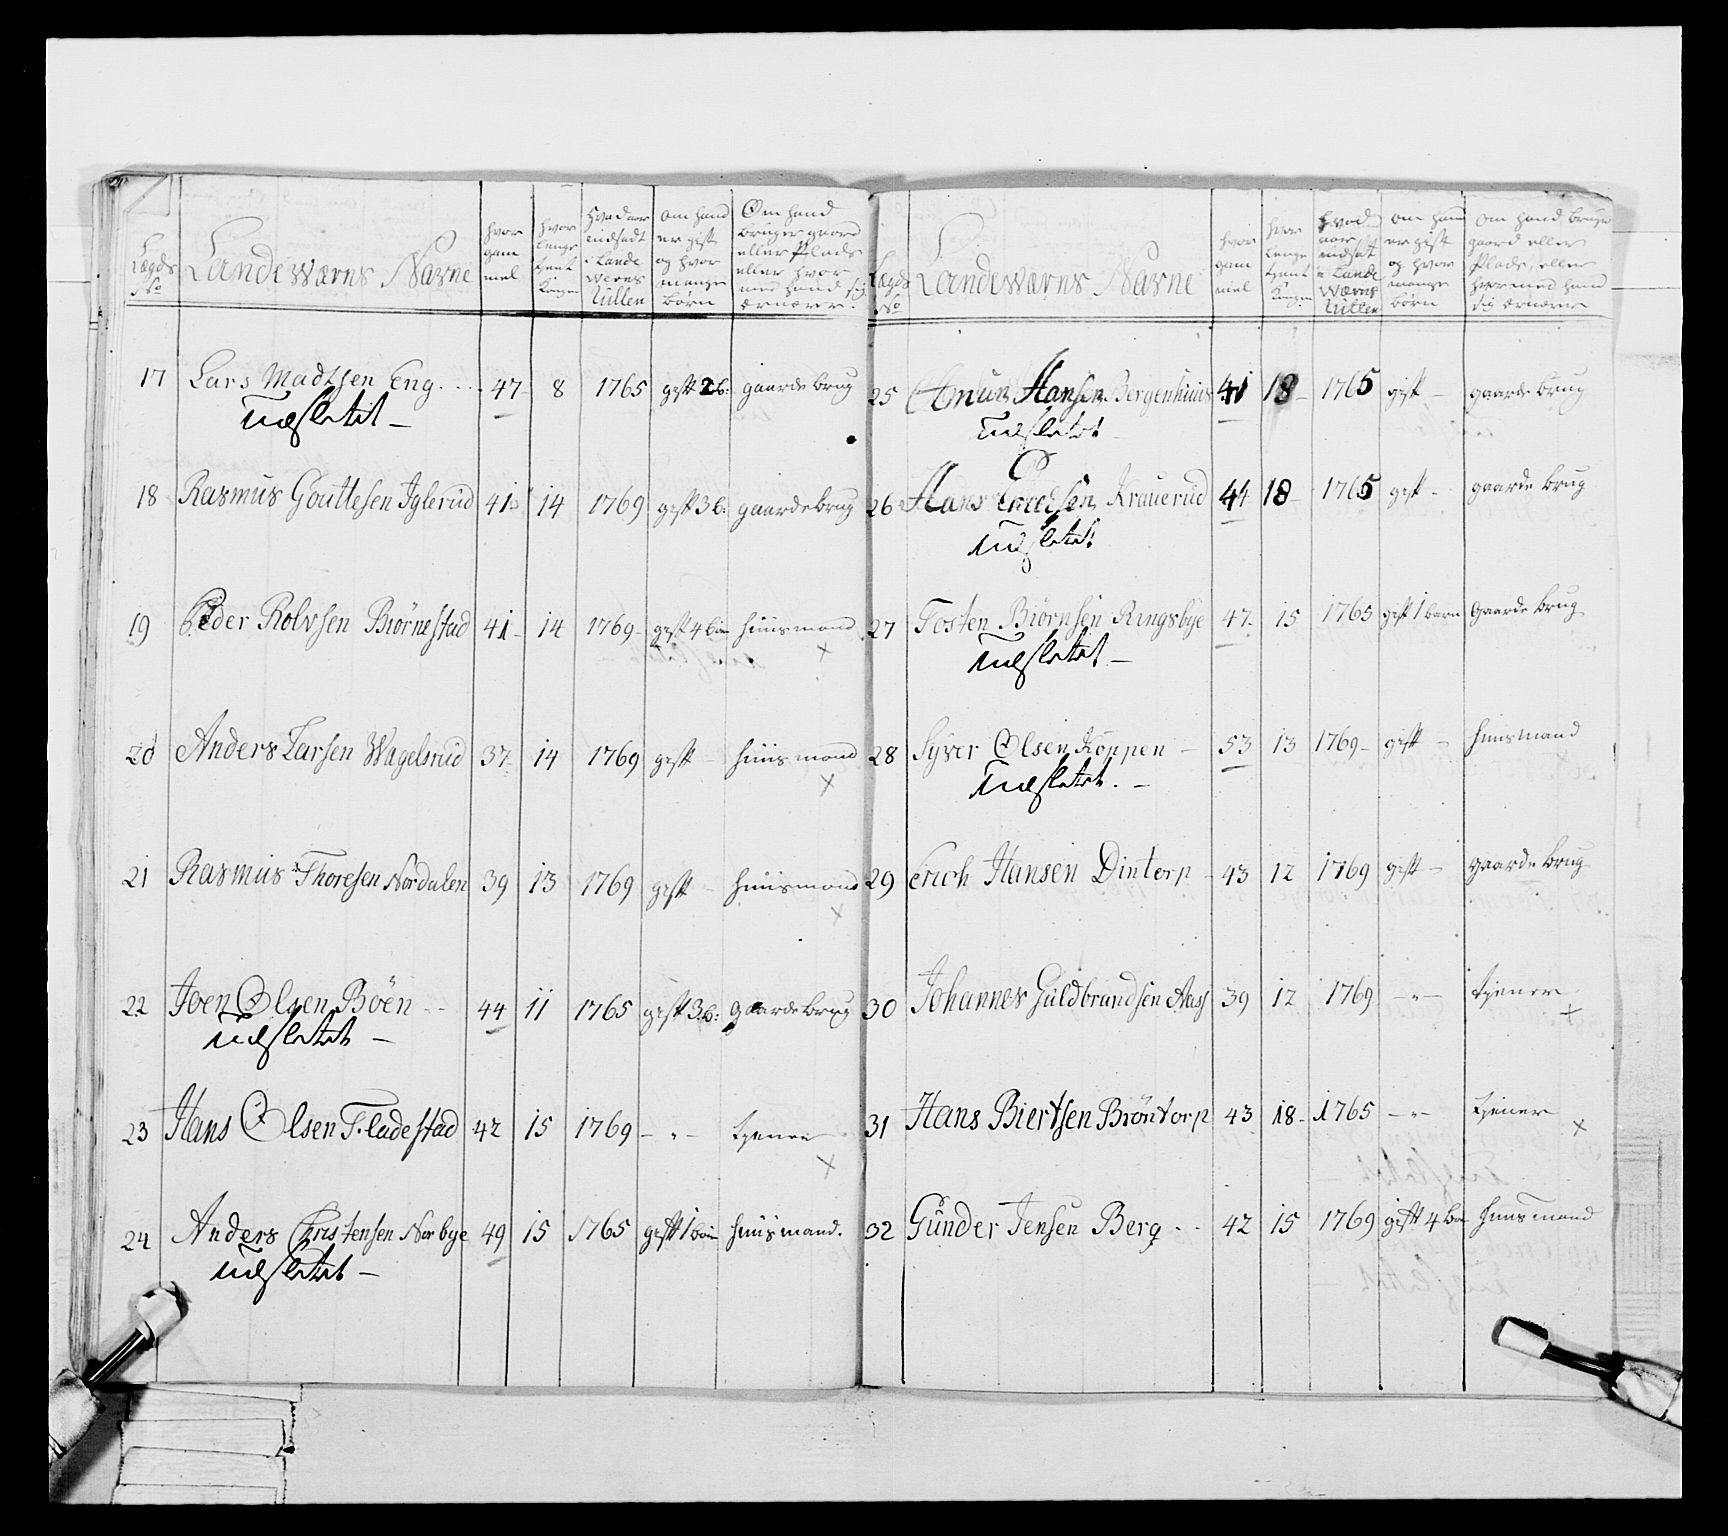 Lægds No
Landeværns Navne
hvor gam mel
hvor lenge tjent Kongen
Hvad aar indsadt i Lande Værns Rullen
om hand er gift og hvor mange börn
Om hand bruger gaard eller Plads eller hvor med hand sig ernærer.
17 Lars Madtsen Eng... 47 8 1765 gift 2 b: gaarde brug
Udslettet
18 Rasmus Gouttesen Iglerud 41 14 1769 gift 3 b: gaardebrug
19 Peder Rolvsen Biørnestad 41 14 1769 gift 4 bör huusmand x
20 Anders Larsen Wagelsrud 37 14 1769 gift huusmand x
21 Rasmus Thoresen Nordalen 39 13 1769 gift huusmand x
22 Joen Olsen Böen 44 11 1765 gift 3 b: gaardebrug
Udslettet
23 Hans Olsen Fladestad 42 15 1769 – " – tjener x
24 Anders Christensen Norbye 49 15 1765 gift 1 bar huusmand.
Udslettet
Lægds No
Landeværns Navne
hvor gam mel
hvor lenge tjent Kongen
hvad aar indsat i Lande Værns Rullen
om hand er gift og hvor mange börn
om hand bruger gaard eller Plads, eller hvormed hand sig ernærer
25 Amun Hansen Bergenhuus 41 18 1765 gift gaarde brug
Udslettet
26 Hans Krauerud 44 18 1765 gift gaarde brug
Udslettet
27 Tosten Biörnsen Ringsbye 47 15 1765 gift 1 barn Gaarde brug
Udslettet
28 Syver Olsen Koppen 53 13 1769 gift huusmand
Udslettet.
29 Erich Hansen Dintorp 43 12 1769 gift gaarde brug
30 Johannes Guldbrandsen Aas 39 12 1769 – " – tjener x
31 Hans Biertsen Bröntorp 43 18 1765 – " – tjener x
32 Gunder Jensen Berg 42 15 1769 gift 4 bör huusmand